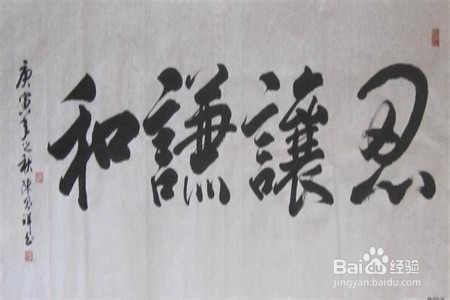 忍讓謙和
庚寅年之秋陈
Baidu经验
jingyan.baidu.com